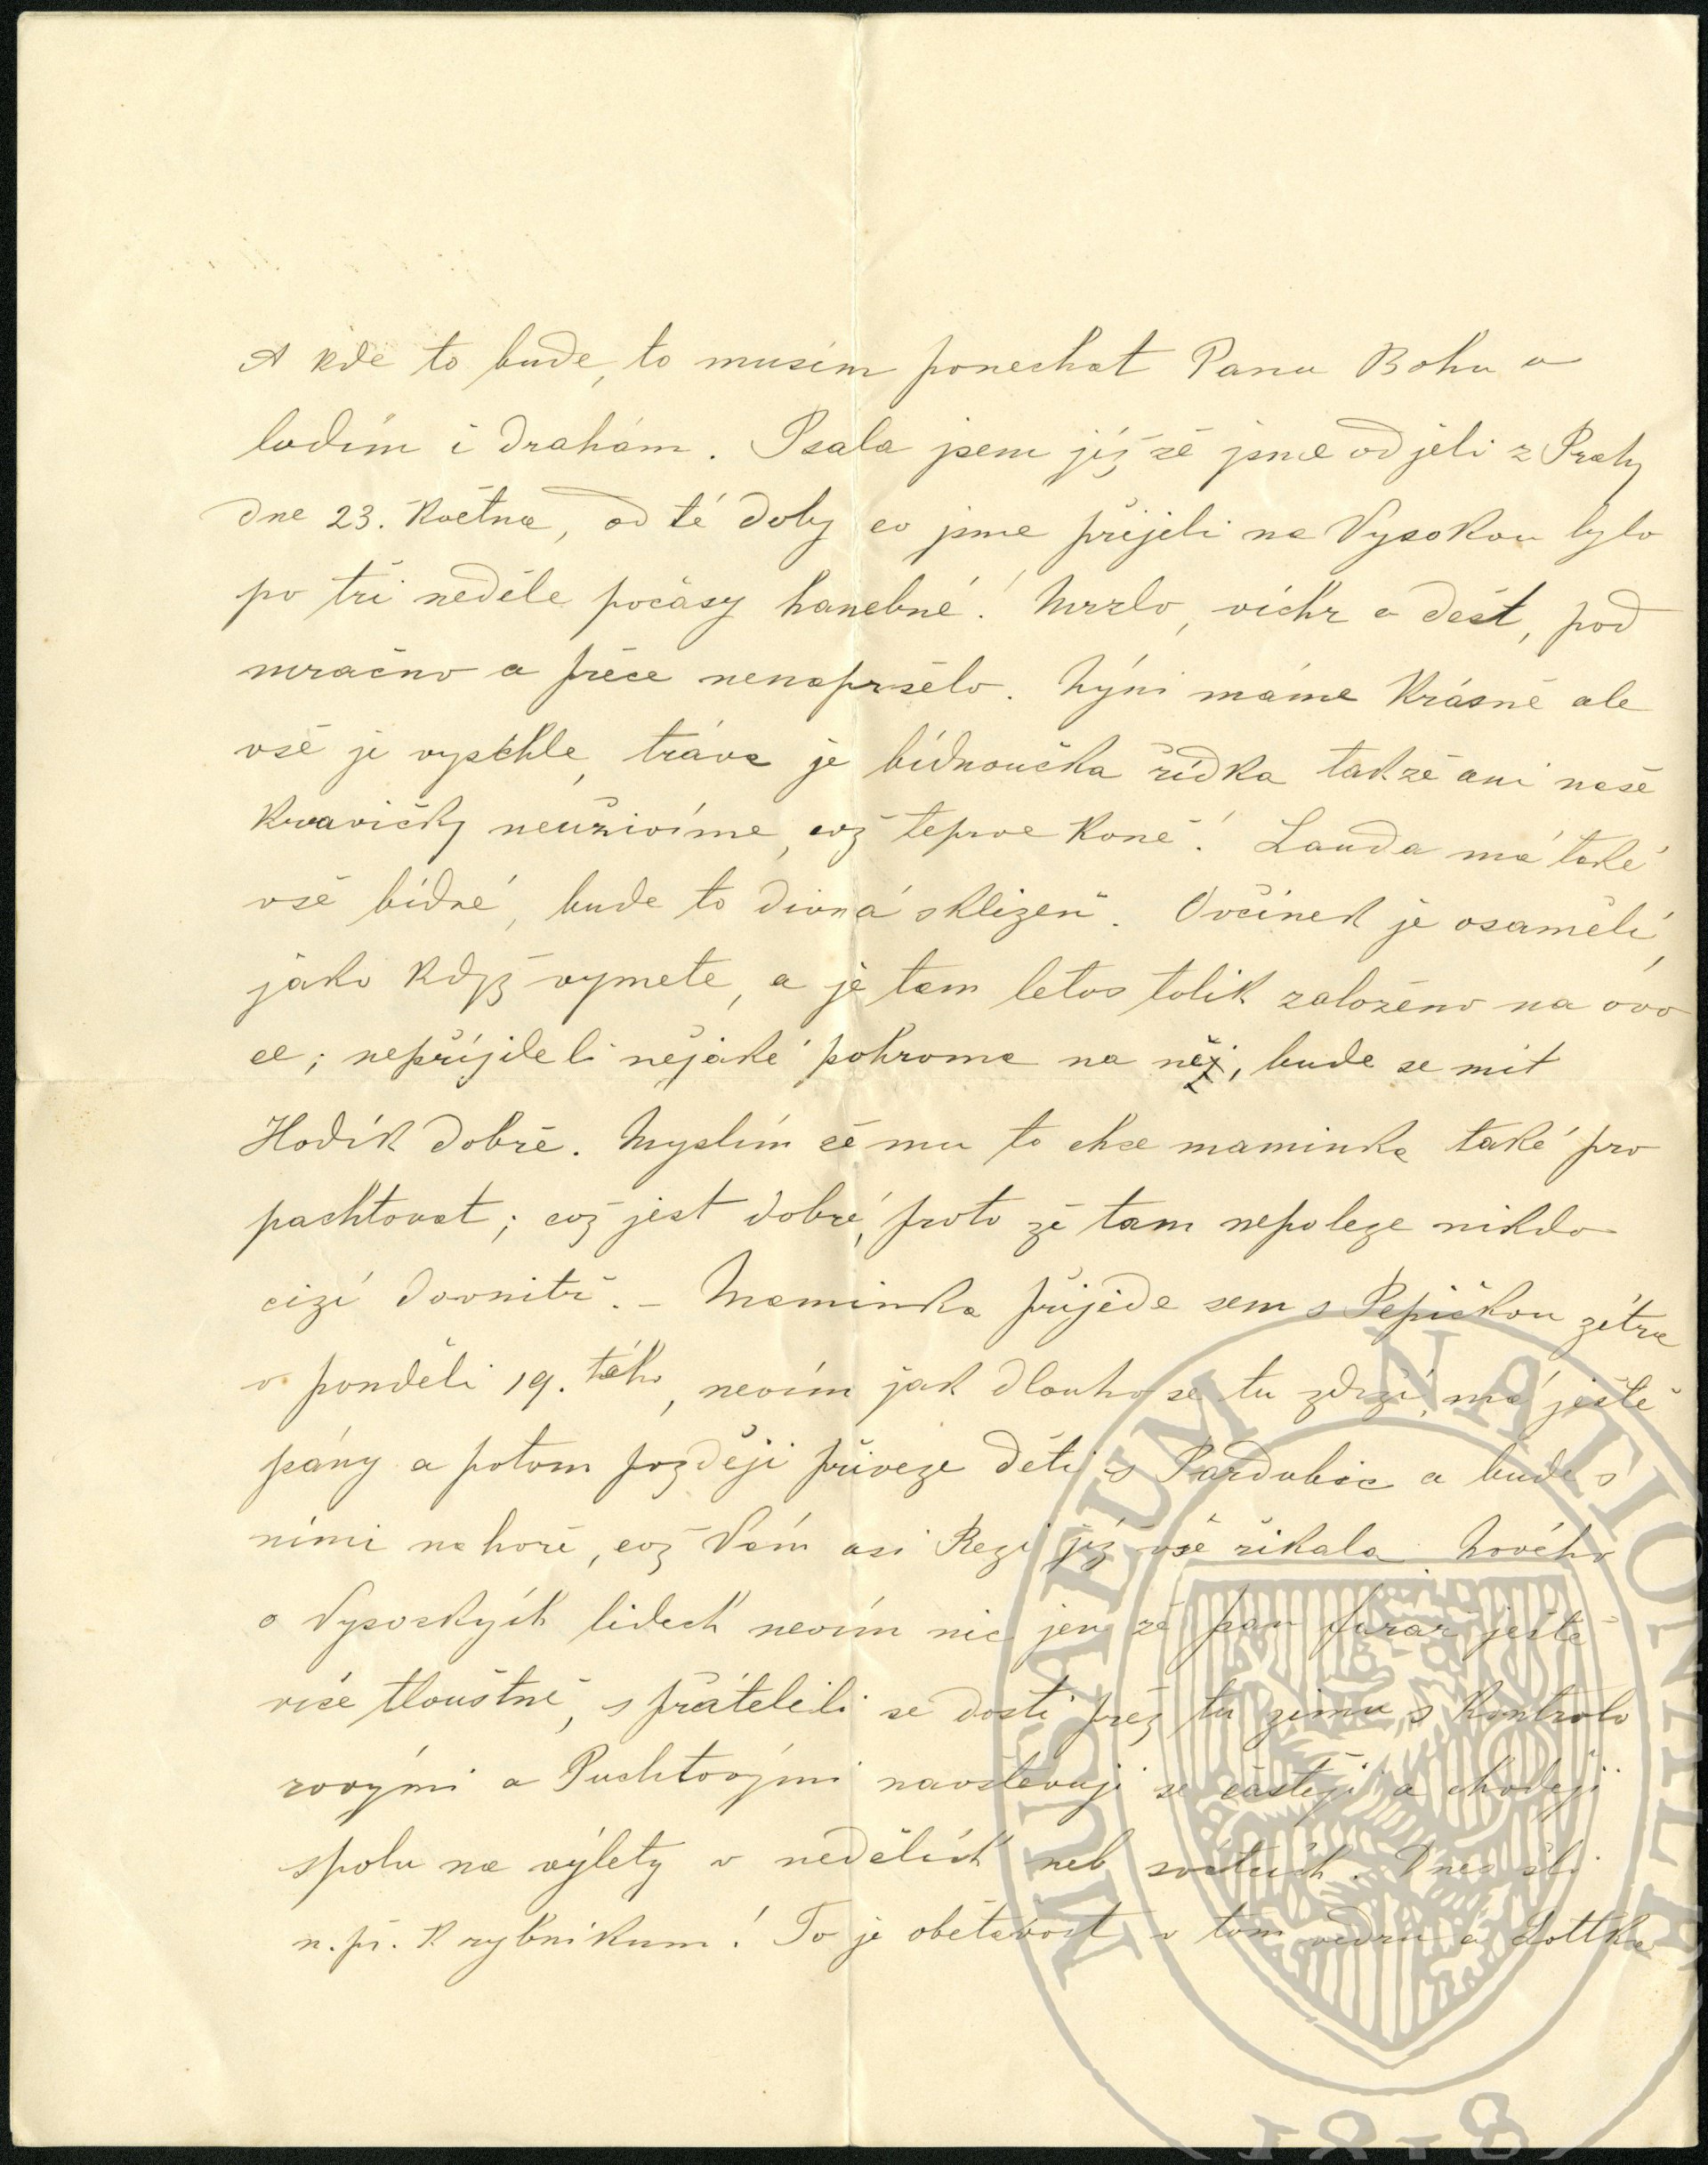 A kde to bude, to musím ponechat Panu Bohu a
lodím i drahám. Psala jsem již že jsme odjeli z Prahy
dne 23. Května, od té doby co jsme přijeli na Vysokou bylo
po tři neděle počasy hanebné! Mrzlo, vichr a dešt, pod
mračno a přece nenapršelo. Nýni máme Krásně ale
vše je vyschle, tráva je bídnoučka řídka takže ani naše
Kravičky neuživíme, což teprve Koně! Lauda má také
vše bídné, bude to divná sklizeň. Ovčínek je osamělí,
jako když vymete, a je tam letos tolik založeno na ovo
ce; nepříjdeli nějaké pohroma na něj, bude se mít
Hodík dobře. Myslím že mu to chce maminka také pro
pachtovat; což jest dobré, proto že tam nepoleze nikdo
cizí dovnitř. – Maminka přijede sem s Pepičkou zítra
v pondělí 19. tého, nevím jak dlouho se tu zdrží, má ještě
pány a potom později přiveze děti z Pardubic a bude s
nimi nahoře, což Vám asi Rezi již vše řikala. Nového
o Vysockých lidech nevím nic jen že pan farař ještě
více tloustně, spřátelili se dosti přez tu zimu s Kontrolo
rovými a Puchtovými navštěvuji se častěji a chodějí
spolu na výlety v nedělích neb svátcích. Dnes šli
n.př. K rybníkum! To je obětavost v tom vedru a Lottka
MUSAEUM NATIONALE
1818